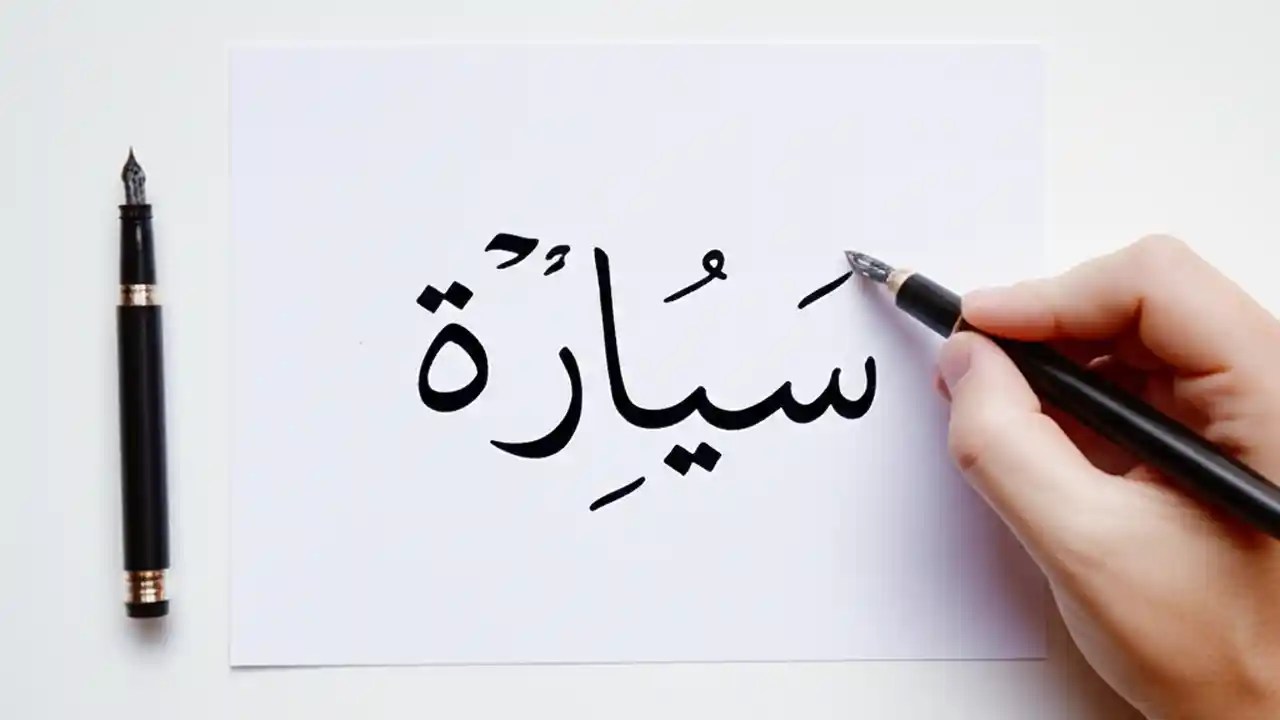 سَيُاِرة